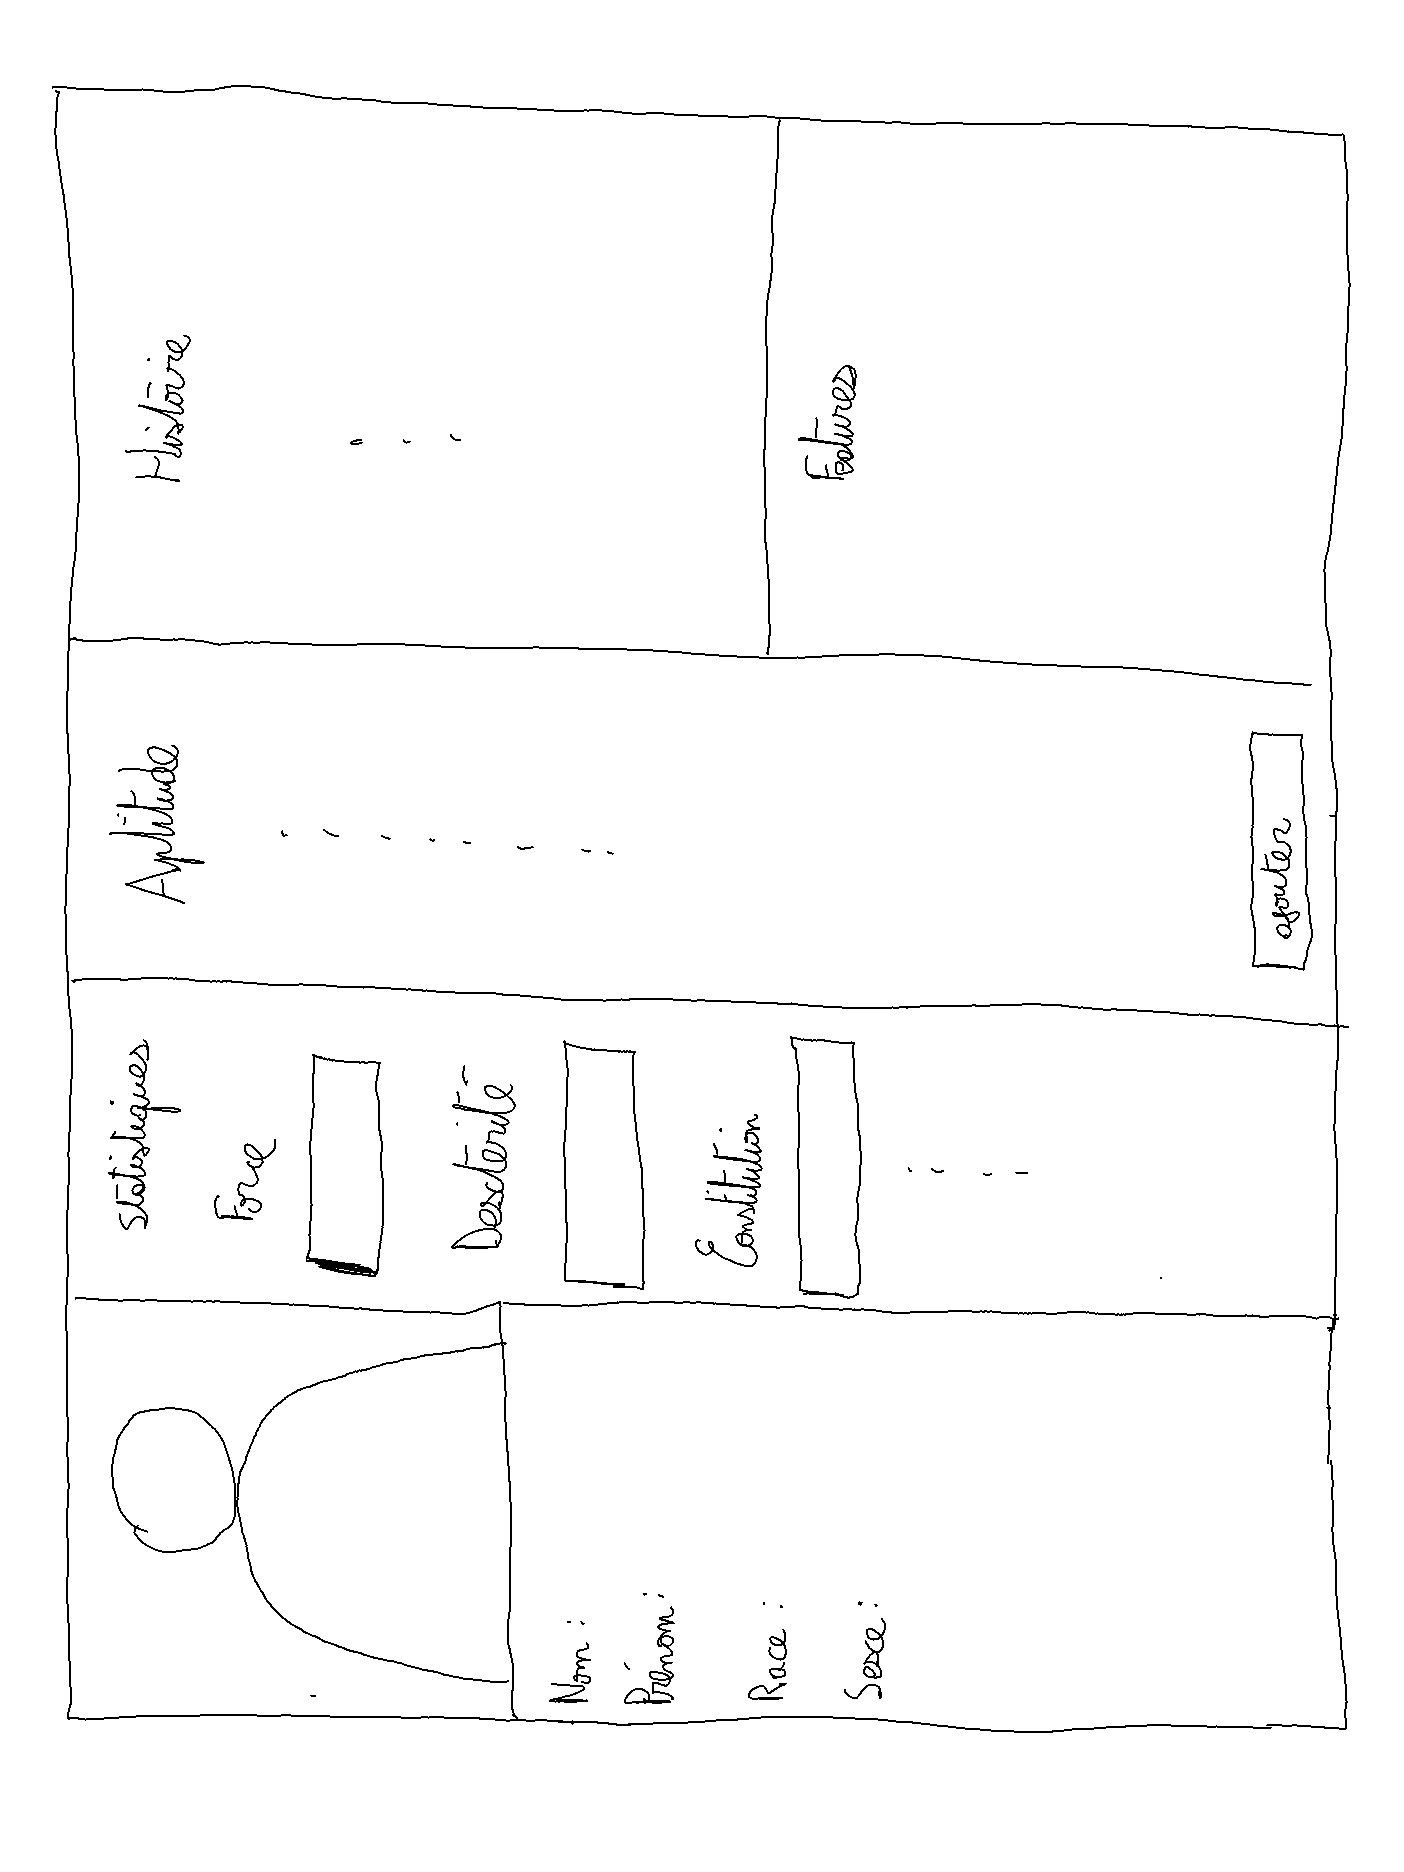 Nom :
Prénom :
Race :
Sexe :
Statistiques
Force
Dexterité
Constitution
Aptitude
ajouter
Histoire
Features